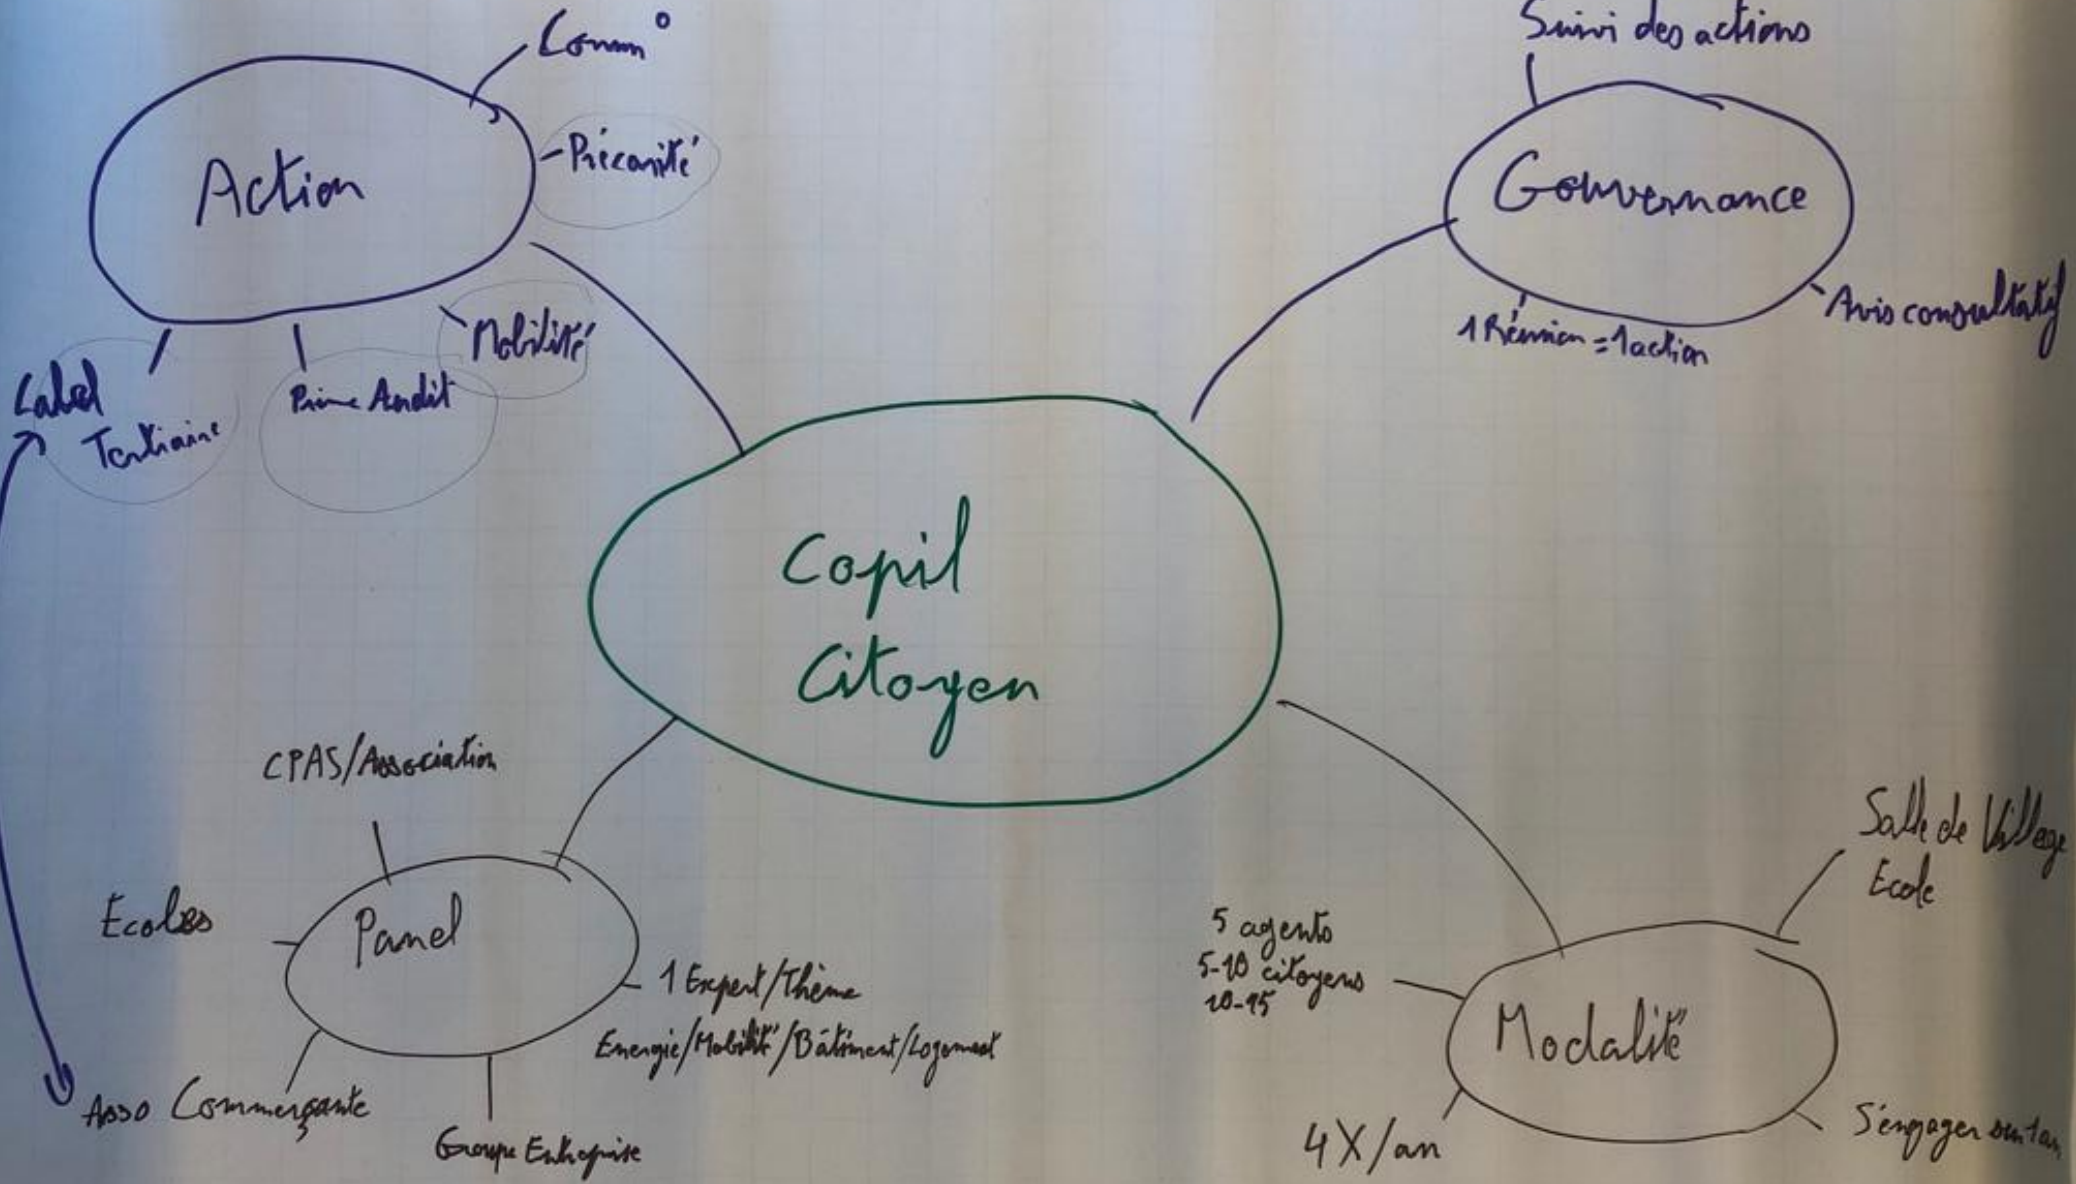 Comm°
Action
Précarité
Mobilité
Prime Audit
Label
Tertiaire
Suivi des actions
Gouvernance
Avis consultatif
1 Réunion = 1 action
Copil
Citoyen
CPAS/Association
Ecoles
Panel
1 Expert/Thème
Energie/Mobilité/Bâtiment/Logement
Asso Commerçante
Groupe Entreprise
Salle de Village
Ecole
5 agents
5-10 citoyens
10-15
Modalité
4X/an
S'engager sur 1 an